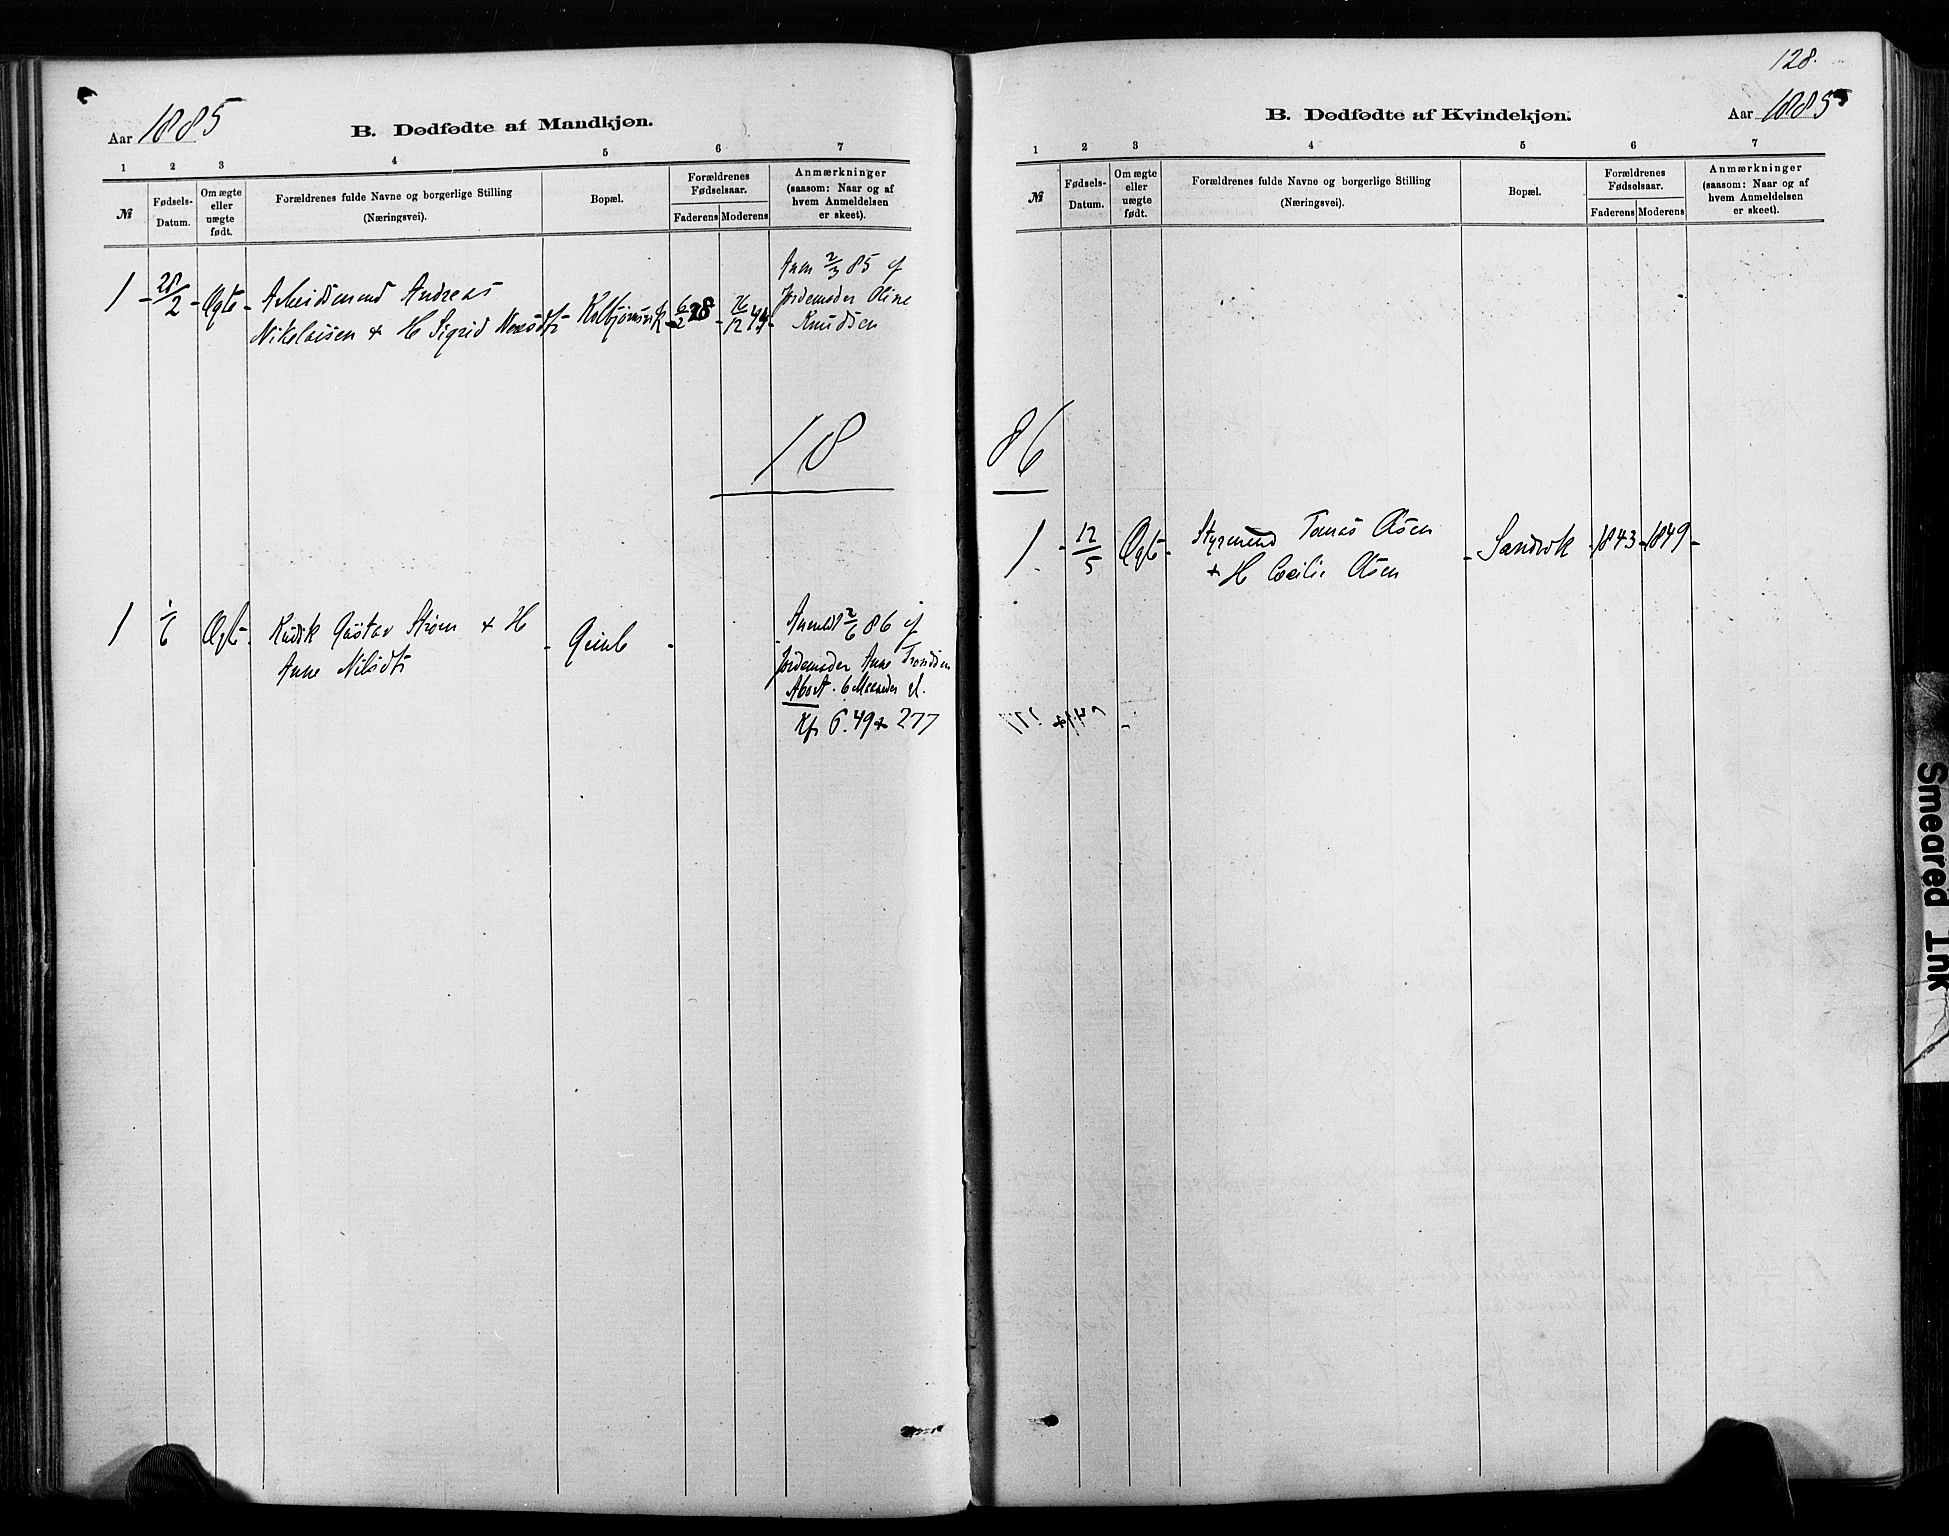 Aar 1885
B. Dødfødte af Mandkjøn.
1 2 3 4 5 6 7
№
Fødsels-
Datum.
Om ægte
eller
uægte
født.
Forældrenes fulde Navne og borgerlige Stilling
(Næringsvei).
Bopæl.
Forældrenes
Fødselsaar.
Faderens Moderens
Anmærkninger
(saasom: Naar og af
hvem Anmeldelsen
er skeet).
1 28/2 Ægte Arbeidsmand Andreas
Nikolaisen + H Sigrid
6/2 28
26/12
Anm 2/3 85 af
Jordemoder Oline
Knudsen
18
1 1/6 Ægte Gustav Strøm + H
Anne Nilsdtr
Anmeldt 2/6 86 af
Jordemoder Anne
Abort. 6 Maaneder gl.
Kfr 6.49 + 277
128.
Aar 1885
B. Dødfødte af Kvindekjøn.
1 2 3 4 5 6 7
№
Fødsels-
Datum.
Om ægte
eller
uægte
født.
Forældrenes fulde Navne og borgerlige Stilling
(Næringsvei).
Bopæl.
Forældrenes
Fødselsaar.
Faderens Moderens
Anmærkninger
(saasom: Naar og af
hvem Anmeldelsen
er skeet).
86
1 12/5 Ægte Styrmand Tomas Olsen
+ H Cecilie Olsen
1843 1849
Smeared Ink